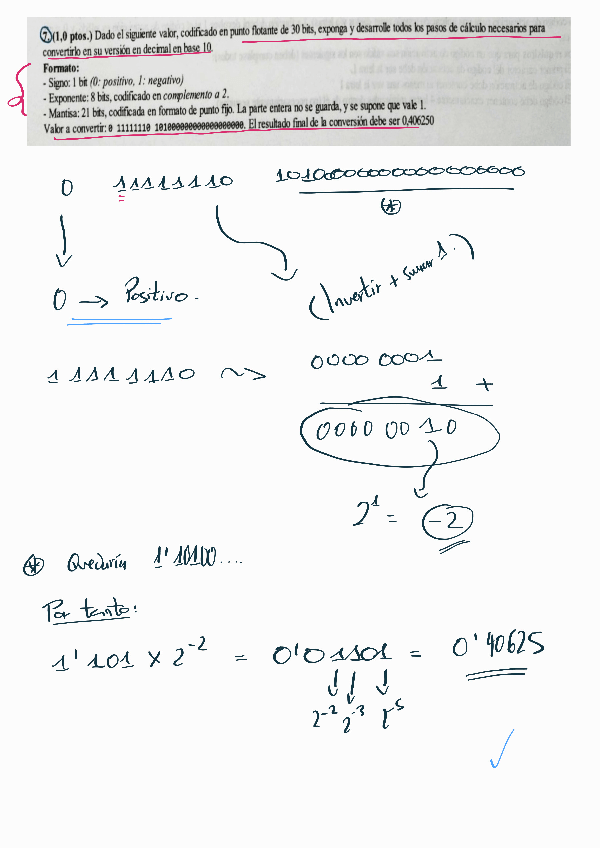 7. (1,0 ptos.) Dado el siguiente valor, codificado en punto flotante de 30 bits, exponga y desarrolle todos los pasos de cálculo necesarios para
convertirlo en su versión en decimal en base 10.
Formato:
- Signo: 1 bit (0: positivo, 1: negativo)
- Exponente: 8 bits, codificado en complemento a 2.
- Mantisa: 21 bits, codificada en formato de punto fijo. La parte entera no se guarda, y se supone que vale 1.
Valor a convertir: 0 11111110 101000000000000000000. El resultado final de la conversión debe ser 0,406250
0 11111110 101000000000000000000
*
0 → Positivo.
(Invertir + sumar 1.)
11111110 ~> 0000 0001
1 +
0000 00 10
2^1 = -2
* Quedaría 1'10100....
Por tanto:
1'101 x 2^-2 = 0'01101 = 0'40625
2^-2 2^-3 2^-5